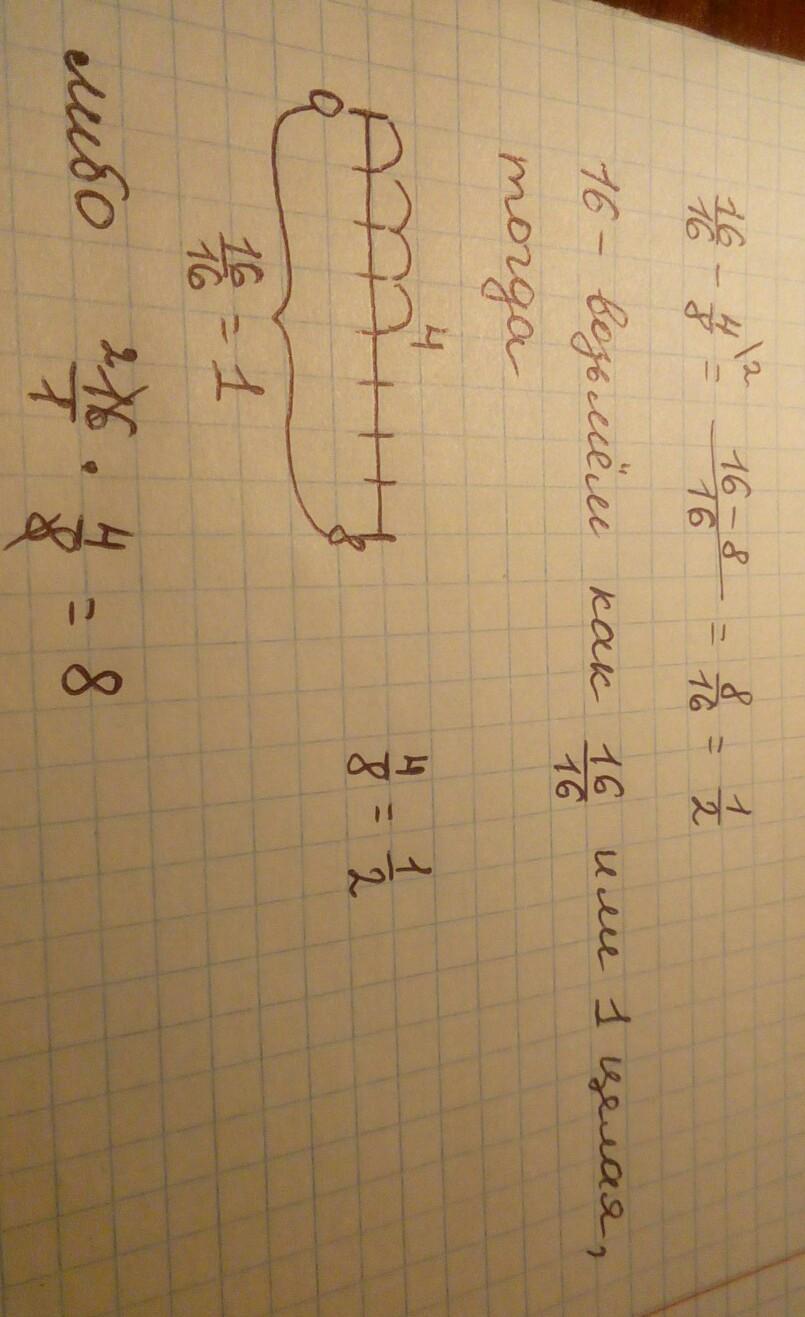 16/16 - 4/8 \2 = (16 - 8)/16 = 8/16 = 1/2
16 - возьмём как 16/16 или 1 целая,
тогда
4
0 8
4/8 = 1/2
16/16 = 1
либо 2 16/1 · 4/8 = 8